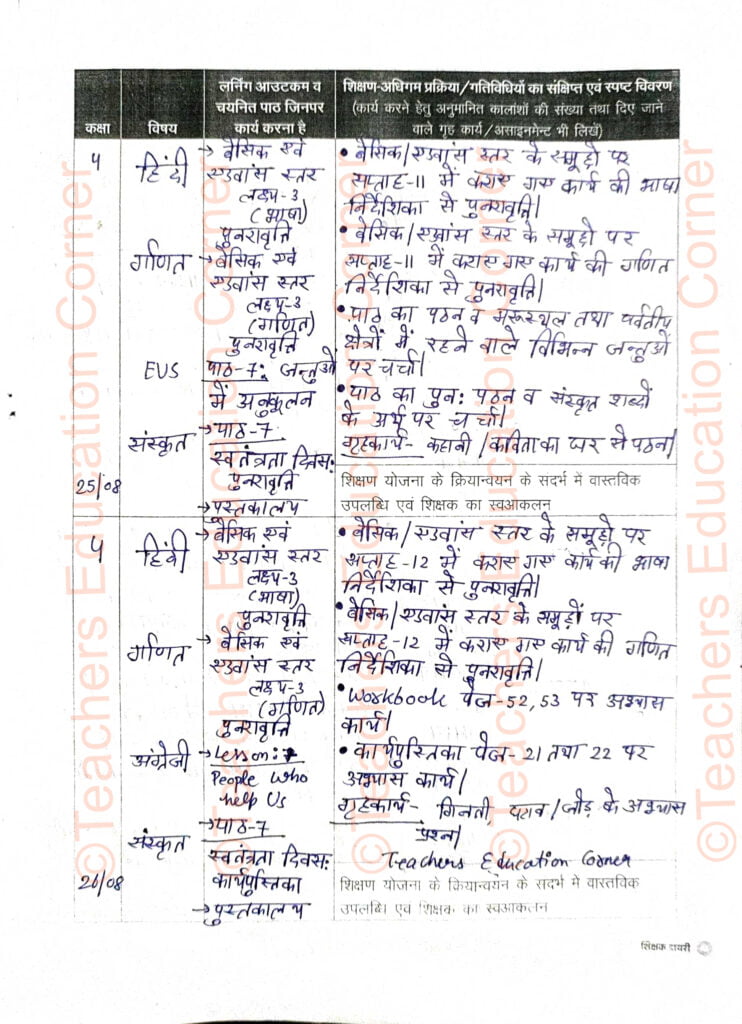 कक्षा
विषय
लर्निंग आउटकम व
चयनित पाठ जिनपर
कार्य करना है
शिक्षण-अधिगम प्रक्रिया/गतिविधियों का संक्षिप्त एवं स्पष्ट विवरण
(कार्य करने हेतु अनुमानित कालांशों की संख्या तथा दिए जाने
वाले गृह कार्य/असाइनमेन्ट भी लिखें)
4
हिंदी
→ बैसिक एवं
एडवांस स्तर
लक्ष्य-3
(भाषा)
पुनरावृत्ति
• बैसिक/एडवांस स्तर के समूहो पर
सप्ताह-11 में कराए गए कार्य की भाषा
निर्देशिका से पुनरावृत्ति।
गणित
→ बैसिक एवं
एडवांस स्तर
लक्ष्य-3
(गणित)
पुनरावृत्ति
• बैसिक/एडवांस स्तर के समूहो पर
सप्ताह-11 में कराए गए कार्य की गणित
निर्देशिका से पुनरावृत्ति।
EVS
पाठ-7: जन्तुओं
में अनुकूलन
• पाठ का पठन व मरूस्थल तथा पर्वतीय
क्षेत्रों में रहने वाले विभिन्न जन्तुओं
पर चर्चा।
संस्कृत
→ पाठ-7
स्वतंत्रता दिवस:
पुनरावृत्ति
→ पुस्तकालय
• पाठ का पुन: पठन व संस्कृत शब्दों
के अर्थ पर चर्चा।
गृहकार्य- कहानी/कविता का घर से पठन।
25/08
शिक्षण योजना के क्रियान्वयन के सदर्भ में वास्तविक
उपलब्धि एवं शिक्षक का स्वआकलन
4
हिंदी
→ बैसिक एवं
एडवांस स्तर
लक्ष्य-3
(भाषा)
पुनरावृत्ति
• बैसिक/एडवांस स्तर के समूहो पर
सप्ताह-12 में कराए गए कार्य की भाषा
निर्देशिका से पुनरावृत्ति।
गणित
→ बैसिक एवं
एडवांस स्तर
लक्ष्य-3
(गणित)
पुनरावृत्ति
• बैसिक/एडवांस स्तर के समूहों पर
सप्ताह-12 में कराए गए कार्य की गणित
निर्देशिका से पुनरावृत्ति।
अंग्रेजी
→ Lesson: 7
People Who
help Us
• Workbook पेज-52, 53 पर अभ्यास
कार्य।
संस्कृत
→ पाठ-7
स्वतंत्रता दिवस:
कार्यपुस्तिका
→ पुस्तकालय
• कार्यपुस्तिका पेज-21 तथा 22 पर
अभ्यास कार्य।
गृहकार्य- गिनती, घटाव/जोड़ के अभ्यास
प्रश्न।
Teachers Education Corner
26/08
शिक्षण योजना के क्रियान्वयन के सदर्भ में वास्तविक
उपलब्धि एवं शिक्षक का स्वआकलन
शिक्षक डायरी
©Teachers Education Corner
©Teachers Education Corner
©Teachers Education Corner
©Teachers Education Corner